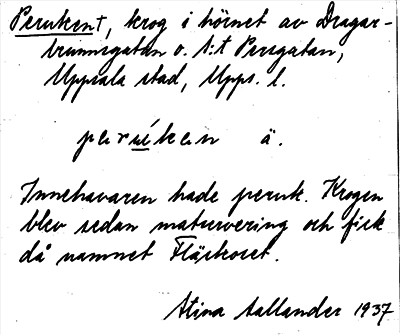 Peruken†, krog i hörnet av Dragar-
brunnsgatan o. S:t Persgatan,
Uppsala stad, Upps. l.
perúken ä.
Innehavaren hade peruk. Krogen
blev sedan matservering och fick
då namnet Fläskoset.
Stina Sallander 1937